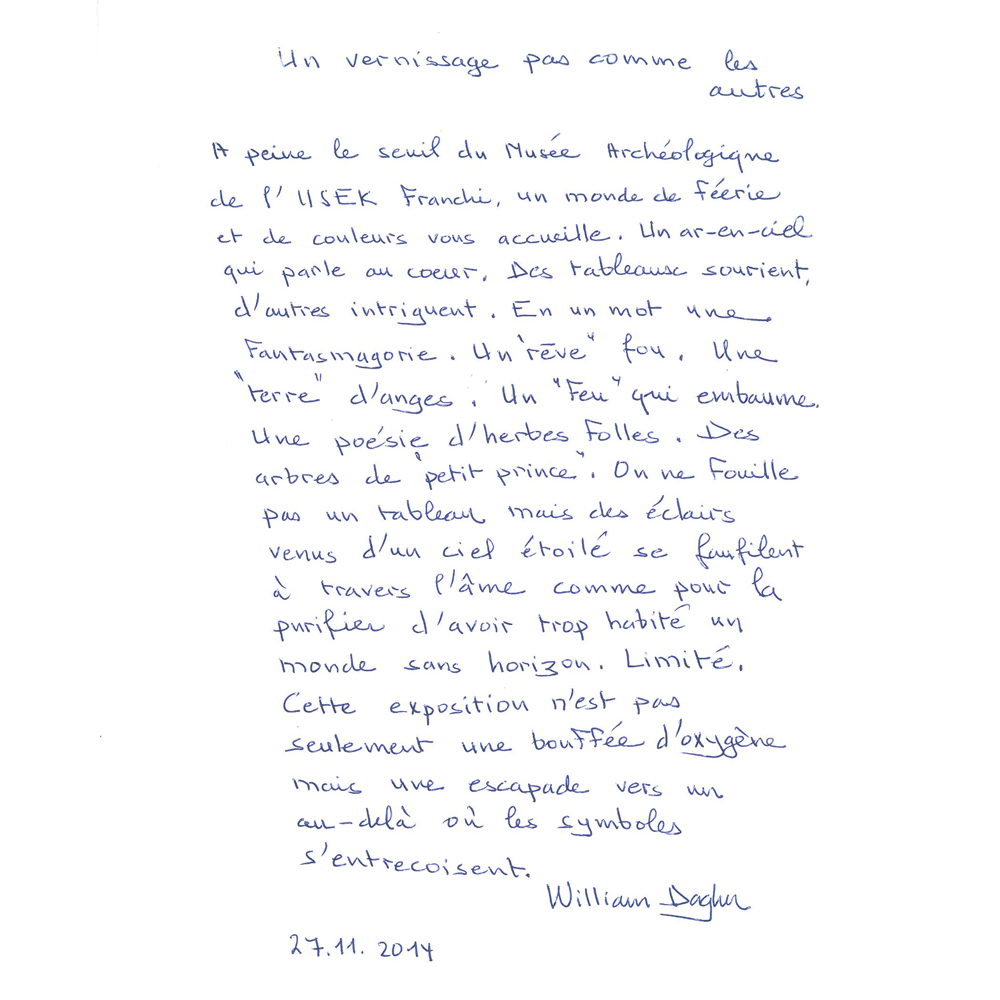 Un vernissage pas comme les
autres
A peine le seuil du Musée Archéologique
de l'USEK Franchi, un monde de féerie
et de couleurs vous accueille. Un ar-en-ciel
qui parle au coeur. Des tableaux sourient,
d'autres intriguent. En un mot une
Fantasmagorie. Un "rêve" fou. Une
"terre" d'anges. Un "Feu" qui embaume.
Une poésie d'herbes Folles. Des
arbres de "petit prince". On ne Fouille
pas un tableau mais des éclairs
venus d'un ciel étoilé se faufilent
à travers l'âme comme pour la
purifier d'avoir trop habité un
monde sans horizon. Limité.
Cette exposition n'est pas
seulement une bouffée d'oxygène
mais une escapade vers un
au-delà où les symboles
s'entrecoisent.
William Dagher
27.11.2014